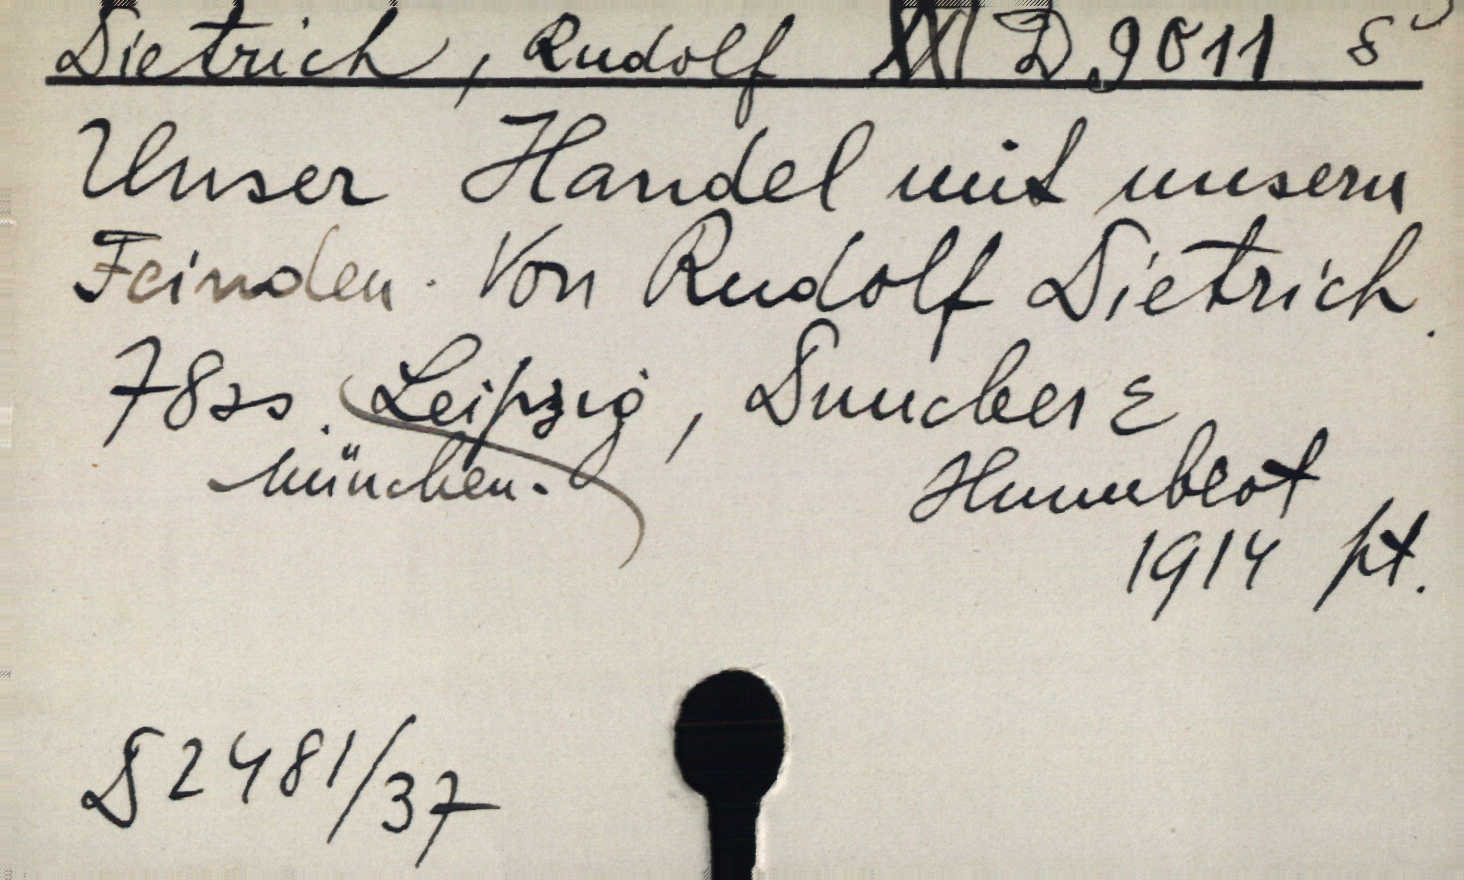 Dietrich, Rudolf XXI D 9011 8°
Unser Handel mit unsern
Feinden. Von Rudolf Dietrich.
78 ss. Leipzig, Duncker &
München. Humblot
1914 pt.
D 2481/37